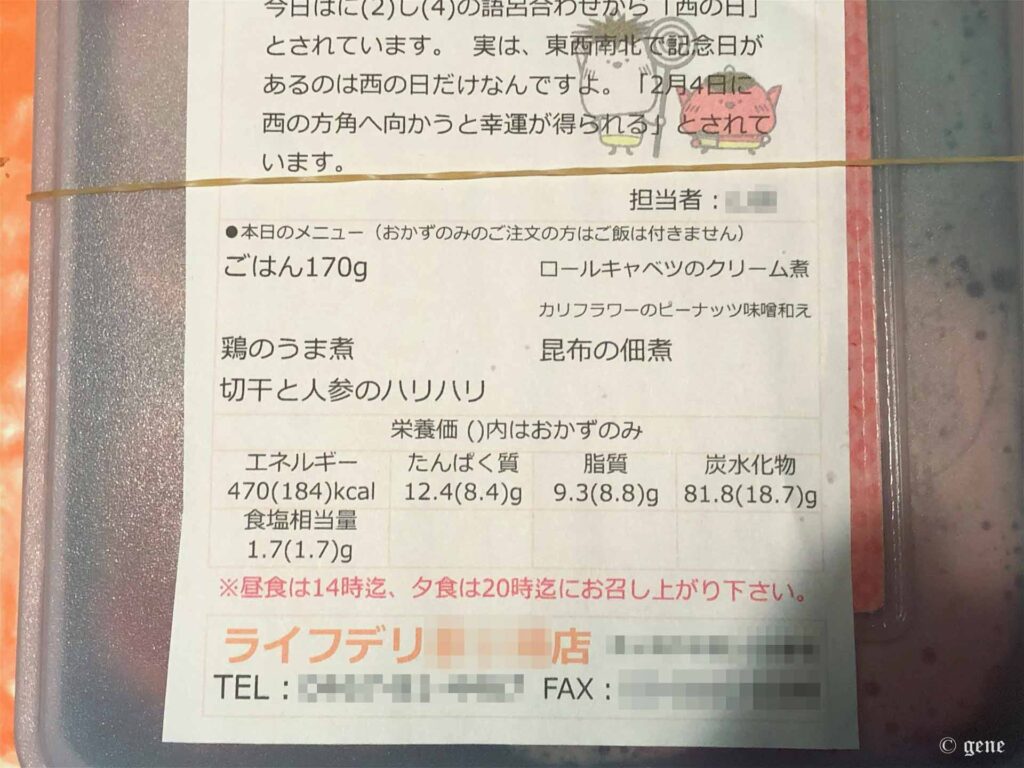 今日はに(2)し(4)の語呂合わせから「西の日」
とされています。 実は、東西南北で記念日が
あるのは西の日だけなんですよ。「2月4日に
西の方角へ向かうと幸運が得られる」とされて
います。
担当者：
●本日のメニュー（おかずのみのご注文の方はご飯は付きません）
ごはん170g ロールキャベツのクリーム煮
カリフラワーのピーナッツ味噌和え
鶏のうま煮 昆布の佃煮
切干と人参のハリハリ
栄養価 ()内はおかずのみ
エネルギー たんぱく質 脂質 炭水化物
470(184)kcal 12.4(8.4)g 9.3(8.8)g 81.8(18.7)g
食塩相当量
1.7(1.7)g
※昼食は14時迄、夕食は20時迄にお召し上がり下さい。
ライフデリ 店
TEL： FAX：
© gene